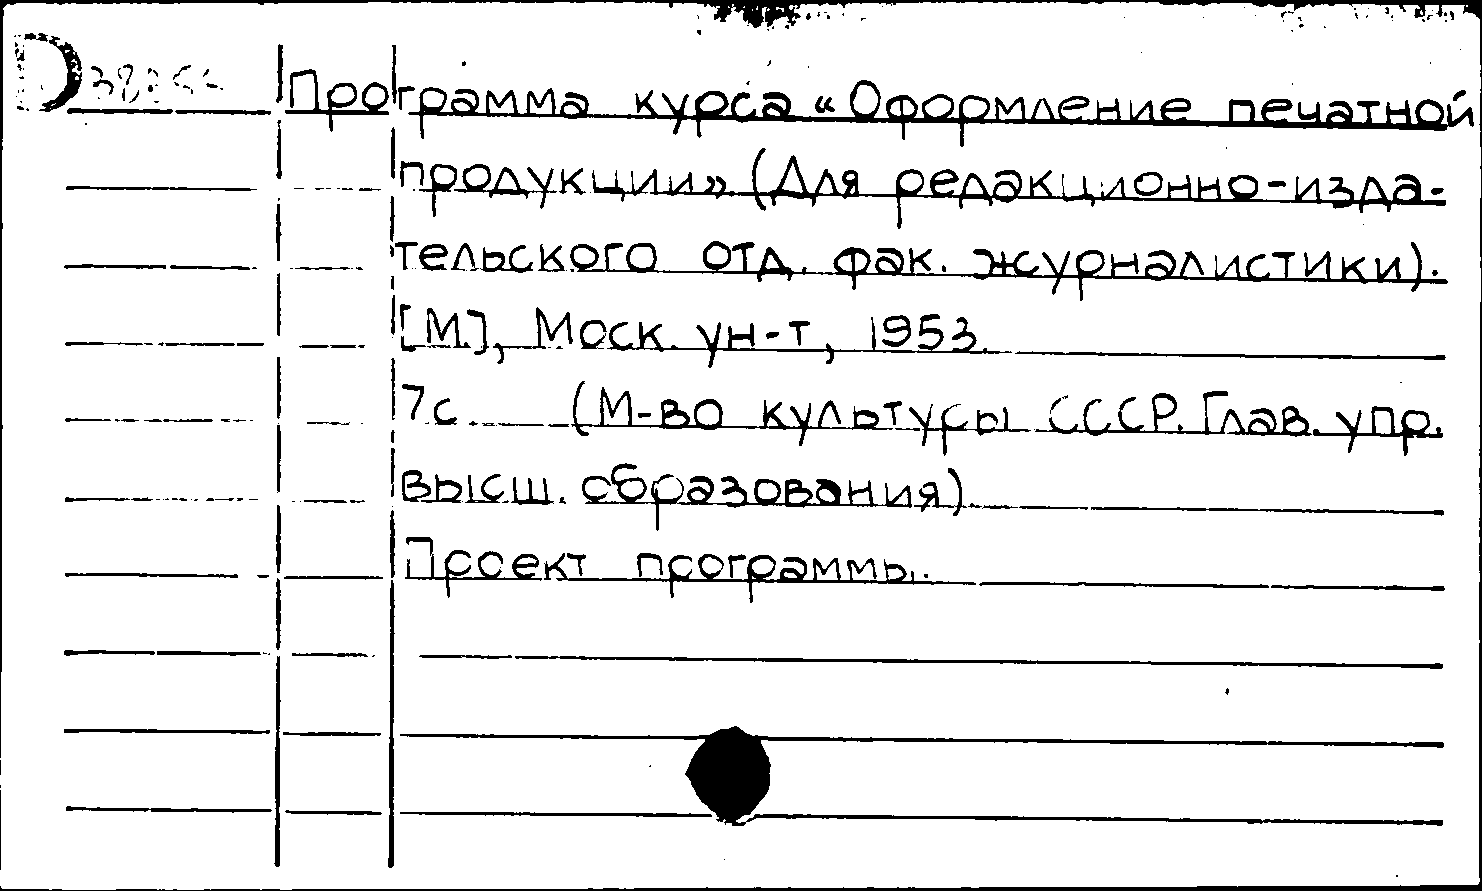 Программа курса «Оформление печатной
продукции» (Для редакционно-изда-
тельского отд. фак. журналистики).
[М.], Моск. ун-т, 1953.
7с (М-во культуры СССР. Глав. упр.
высш. образования).
Проект программы.